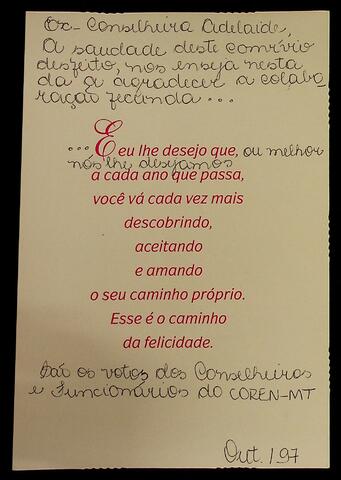 Ex-Conselheira Adelaide,
A saudade deste convívio
desfeito, nos enseja nesta
da qe agradecer a colabo-
ração fecunda...
...E eu lhe desejo que, ou melhor
nós lhe desejamos
a cada ano que passa,
você vá cada vez mais
descobrindo,
aceitando
e amando
o seu caminho próprio.
Esse é o caminho
da felicidade.
São os votos dos Conselheiros
e Funcionários do COREN-MT
Out. 197